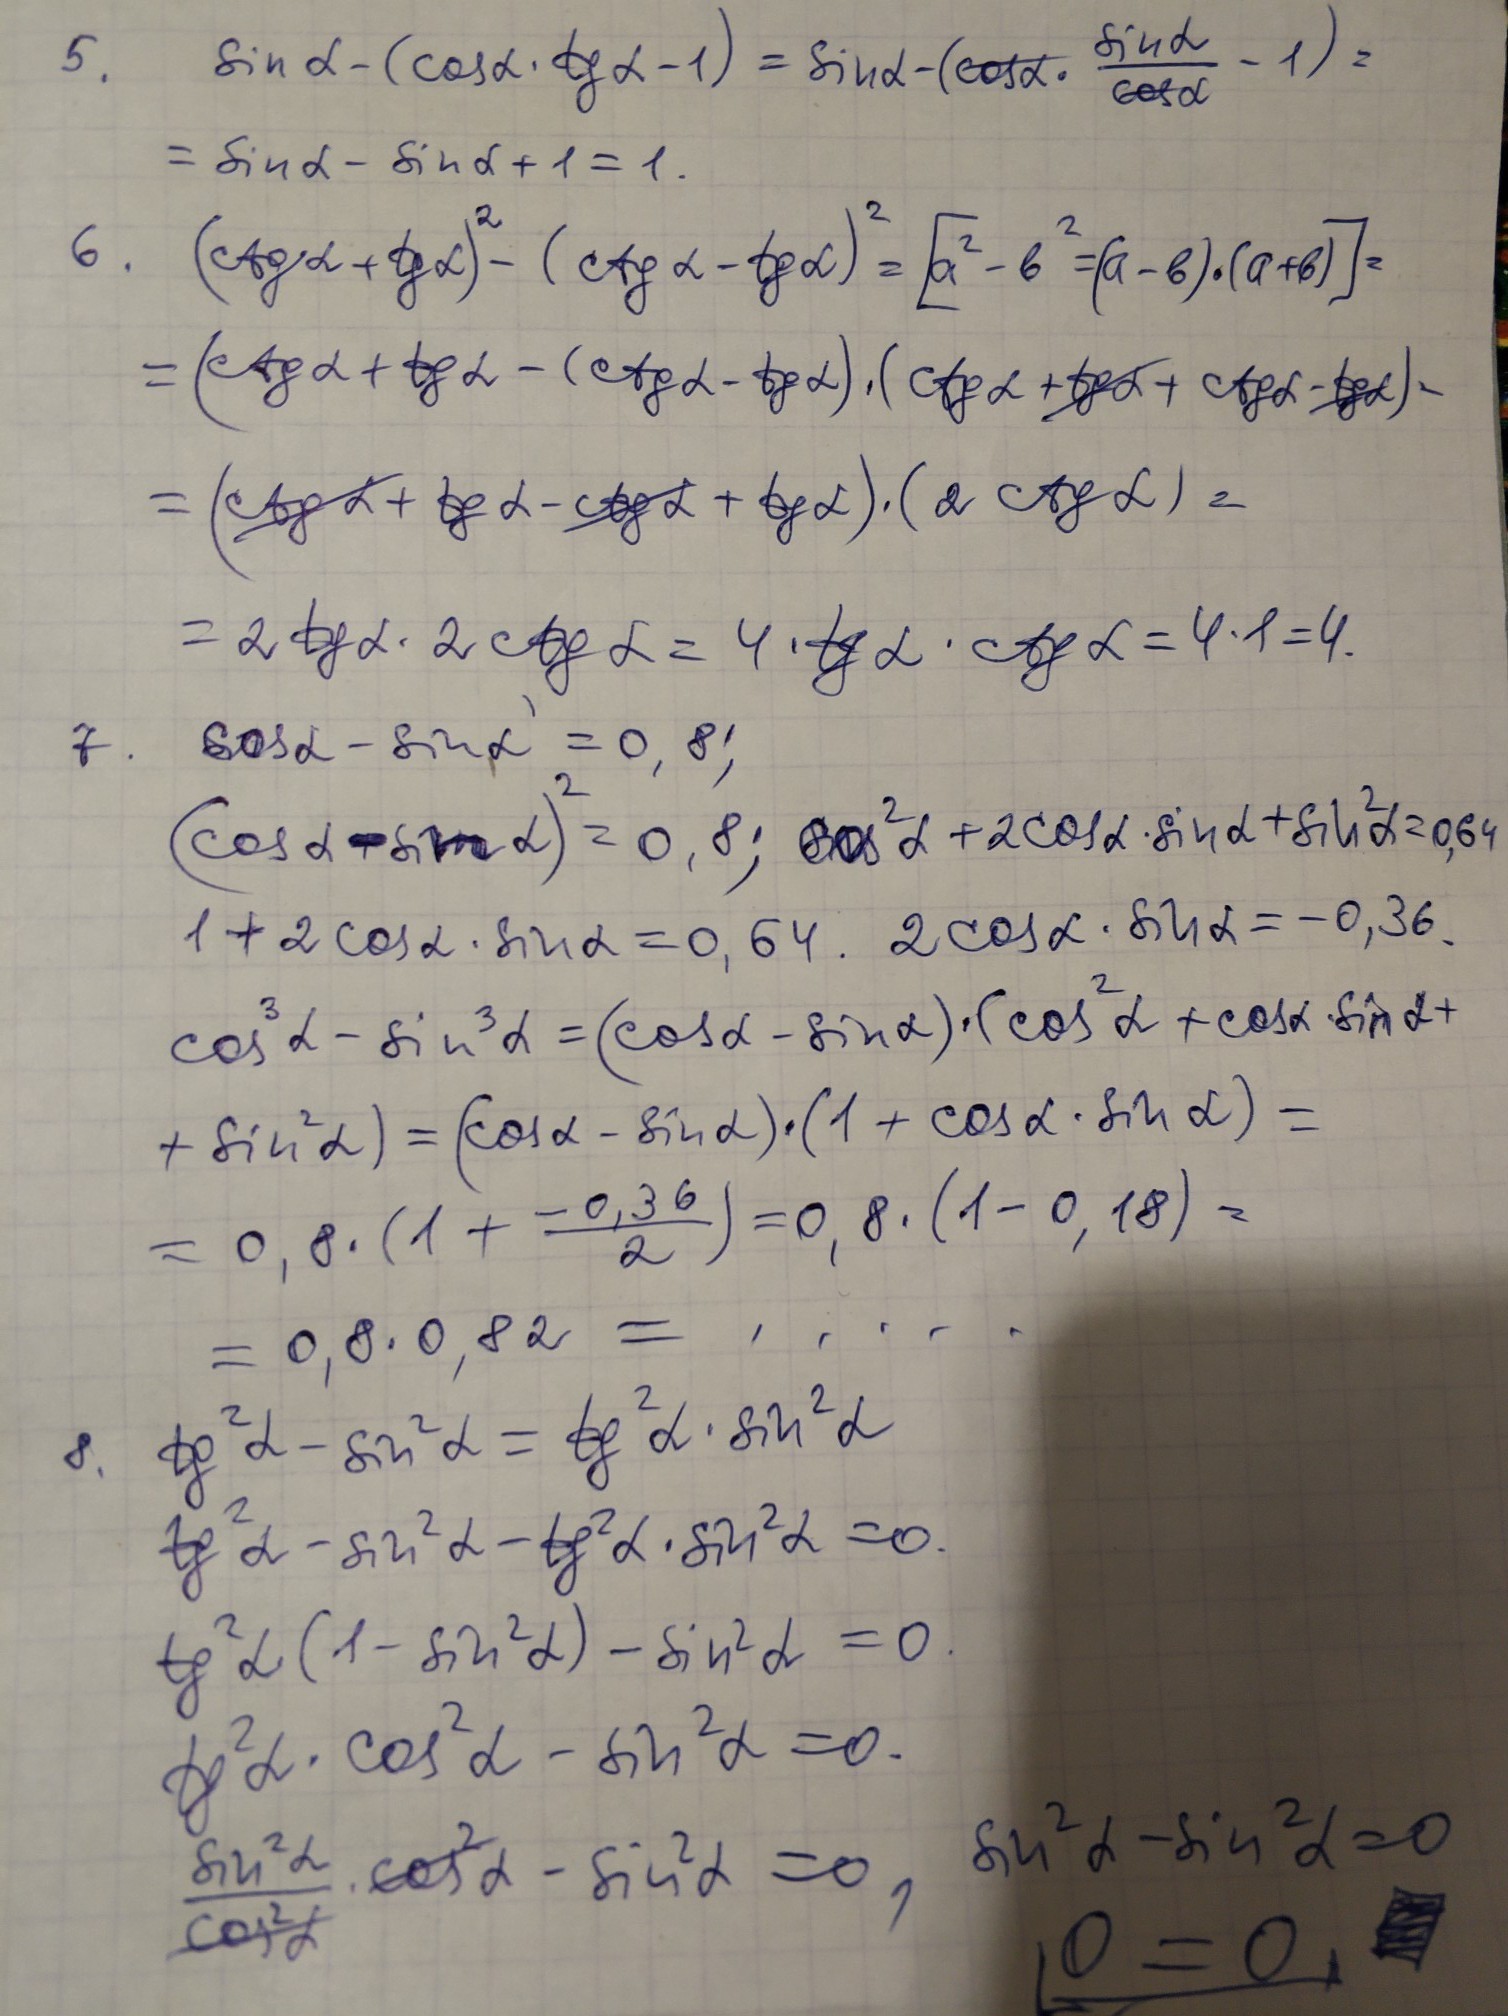 5. sin α - (cos α · tg α - 1) = sin α - (cos α · sin α / cos α - 1) =
= sin α - sin α + 1 = 1.
6. (ctg α + tg α)² - (ctg α - tg α)² = [a² - b² = (a - b) · (a + b)] =
= (ctg α + tg α - (ctg α - tg α) · (ctg α + tg α + ctg α - tg α) =
= (ctg α + tg α - ctg α + tg α) · (2 ctg α) =
= 2 tg α · 2 ctg α = 4 · tg α · ctg α = 4 · 1 = 4.
7. cos α - sin α = 0,8;
(cos α - sin α)² = 0,8; cos² α + 2 cos α · sin α + sin² α = 0,64
1 + 2 cos α · sin α = 0,64. 2 cos α · sin α = -0,36.
cos³ α - sin³ α = (cos α - sin α) · (cos² α + cos α · sin α +
+ sin² α) = (cos α - sin α) · (1 + cos α · sin α) =
= 0,8 · (1 + -0,36 / 2) = 0,8 · (1 - 0,18) =
= 0,8 · 0,82 = . . . . .
8. tg² α - sin² α = tg² α · sin² α
tg² α - sin² α - tg² α · sin² α = 0.
tg² α (1 - sin² α) - sin² α = 0.
tg² α · cos² α - sin² α = 0.
sin² α / cos² α · cos² α - sin² α = 0, sin² α - sin² α = 0
0 = 0.